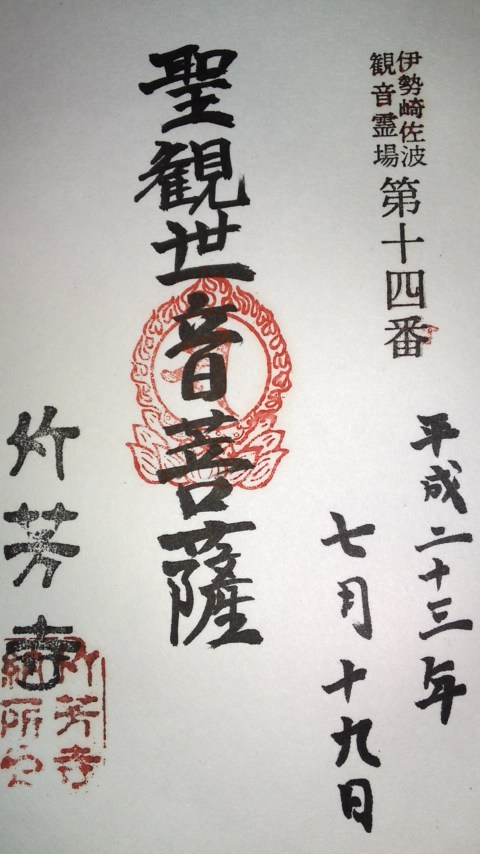 伊勢崎佐波
観音霊場
第十四番
平成二十三年
七月十九日
聖観世音菩薩
竹芳寺
竹芳寺
納所印